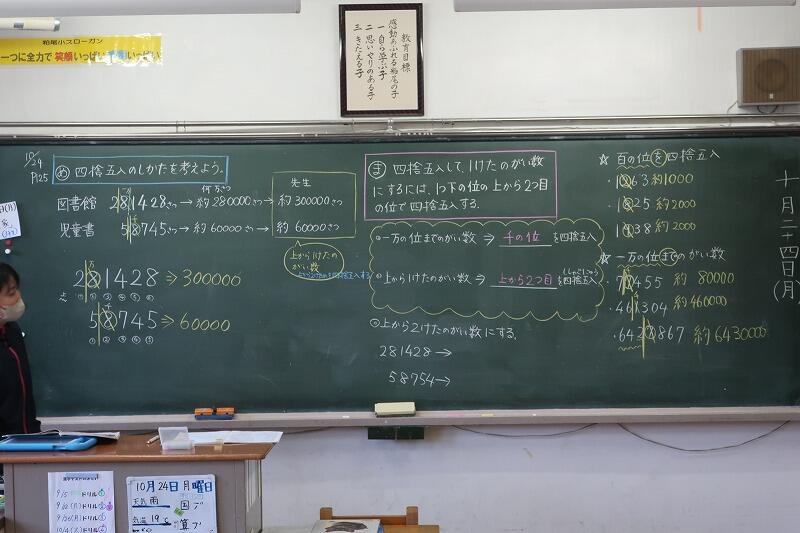 粕尾小スローガン
一つに全力で 笑顔いっぱい いっぱい
教育目標
感動あふれる粕尾の子
一 自ら学ぶ子
二 思いやりのある子
三 きたえる子
10/24
P125
め 四捨五入のしかたを考えよう。
何万さつ
図書館 281428さつ → 約280000さつ →
児童書 58745さつ → 約60000さつ →
先生
約300000さつ
約60000さつ
上から1けたのがい数
281428 ⇒ 300000
① ② ③ ④ ⑤ ⑥
58745 ⇒ 60000
① ② ③ ④ ⑤
ま 四捨五入して、1けたのがい数
にするには、1つ下の位の上から2つ目
の位で四捨五入する。
一万の位までのがい数 ⇒ 千の位 を四捨五入
上から1けたのがい数 ⇒ 上から2つ目 を四捨五入
(ししゃごにゅう)
上から2けたのがい数にする。
281428→
58754→
☆ 百の位を四捨五入
1263 約1000
1825 約2000
約2000
☆ 一万の位までのがい数
455 約 80000
461304 約460000
867 約6430000
十月二十四日(月)
10月24日 月曜日
天気 雨
気温 19℃
国
算
9/5 ドリル
9/20(火)ドリル
10/4(火)ドリル